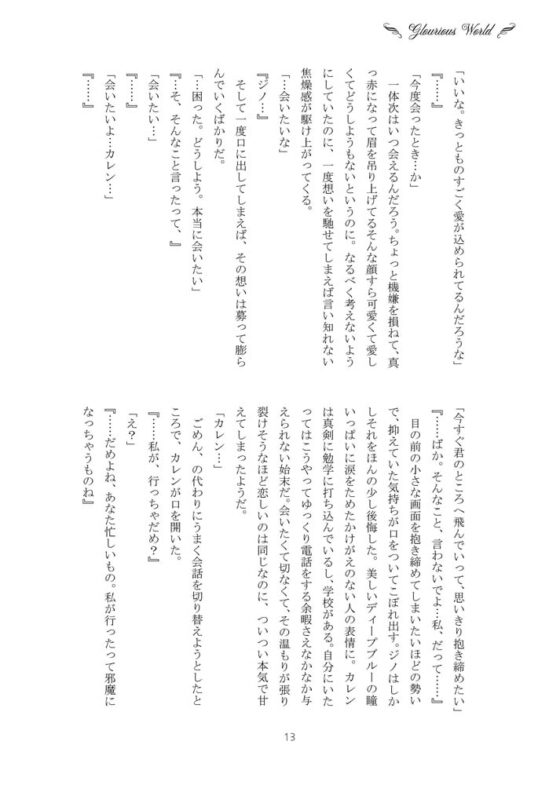 Glourious World
「いいな。きっとものすごく愛が込められてるんだろうな」
『……』
「今度会ったとき…か」
一体次はいつ会えるんだろう。ちょっと機嫌を損ねて、真
っ赤になって眉を吊り上げてるそんな顔すら可愛くて愛し
くてどうしようもないというのに。なるべく考えないよう
にしていたのに、一度想いを馳せてしまえば言い知れない
焦燥感が駆け上がってくる。
「…会いたいな」
『ジノ…』
そして一度口に出してしまえば、その想いは募って膨ら
んでいくばかりだ。
「…困った。どうしよう。本当に会いたい」
『…そ、そんなこと言ったって、』
「会いたい…」
『……』
「会いたいよ…カレン…」
『……』
「今すぐ君のところへ飛んでいって、思いきり抱き締めたい」
『……ばか。そんなこと、言わないでよ…私、だって……』
目の前の小さな画面を抱き締めてしまいたいほどの勢い
で、抑えていた気持ちが口をついてこぼれ出す。ジノはしか
しそれをほんの少し後悔した。美しいディープブルーの瞳
いっぱいに涙をためたかけがえのない人の表情に。カレン
は真剣に勉学に打ち込んでいるし、学校がある。自分にいた
ってはこうやってゆっくり電話をする余暇さえなかなか与
えられない始末だ。会いたくて切なくて、その温もりが張り
裂けそうなほど恋しいのは同じなのに、ついつい本気で甘
えてしまったようだ。
「カレン…」
ごめん、の代わりにうまく会話を切り替えようとしたと
ころで、カレンが口を開いた。
『……私が、行っちゃだめ？』
「え？」
『……だめよね、あなた忙しいもの。私が行ったって邪魔に
なっちゃうものね』
13